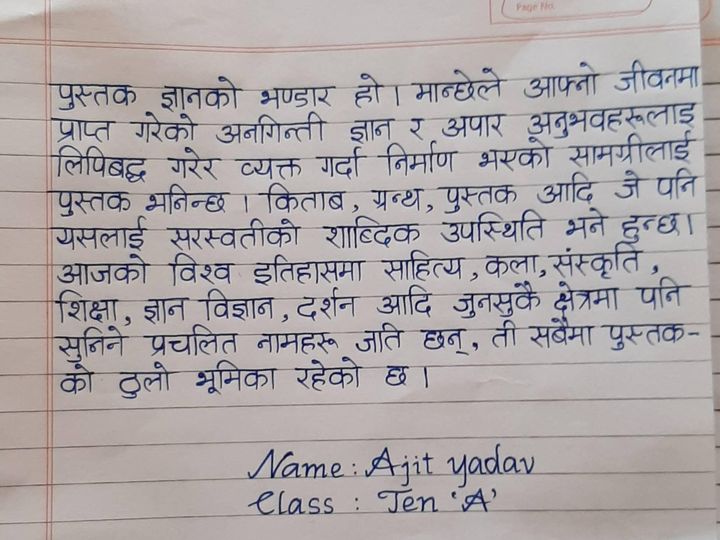 Page No.
पुस्तक ज्ञानको भण्डार हो । मान्छेले आफ्नो जीवनमा
प्राप्त गरेको अनगिन्ती ज्ञान र अपार अनुभवहरूलाइ
लिपिबद्ध गरेर व्यक्त गर्दा निर्माण भएको सामग्रीलाई
पुस्तक भनिन्छ । किताब, ग्रन्थ, पुस्तक आदि जे पनि
यसलाई सरस्वतीको शाब्दिक उपस्थिति भने हुन्छ।
आजको विश्व इतिहासमा साहित्य, कला, संस्कृति,
शिक्षा, ज्ञान विज्ञान, दर्शन आदि जुनसुकै क्षेत्रमा पनि
सुनिने प्रचलित नामहरू जति छन्, ती सबैमा पुस्तक-
को ठुलो भूमिका रहेको छ ।
Name: Ajit yadav
Class : Ten 'A'